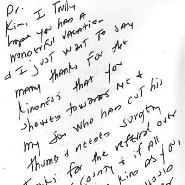 Dr.
Kim, I Truly
hope you has A
wonderful vacation
& I Just Want To Say
many Thanks For the
Kindness that you
showed towards ME &
my Son Who has cut his
thumb & needed surgery
Thanks for the referral over
County & if All
Kind AS you
would